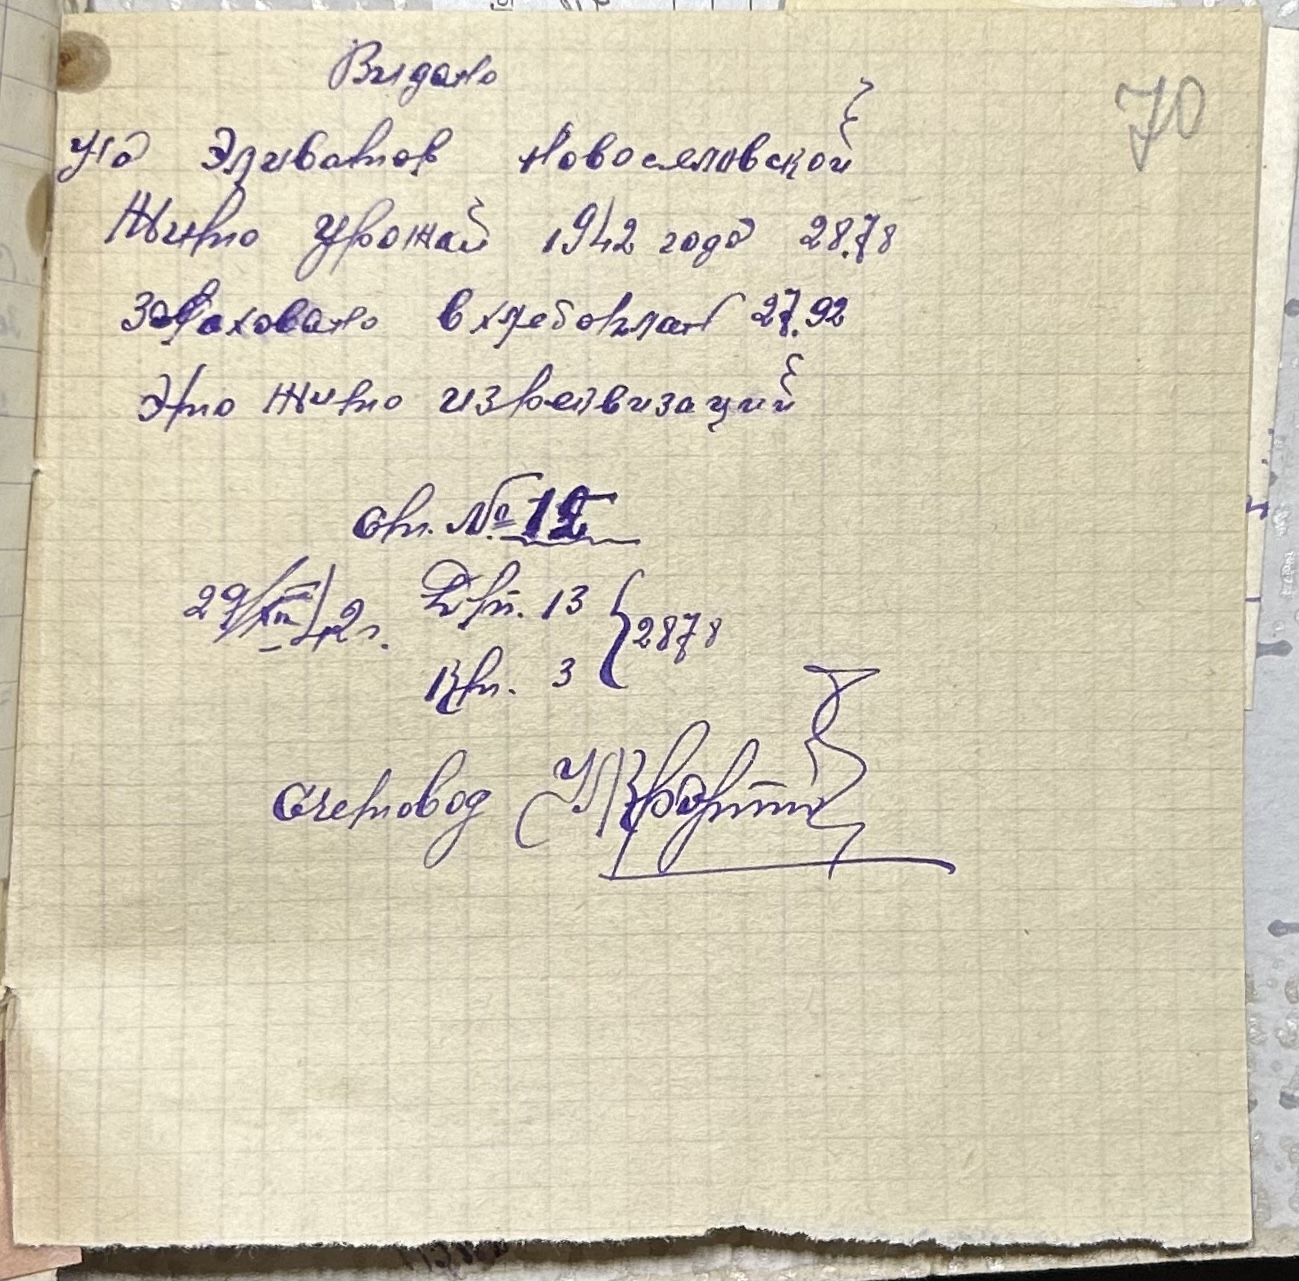 Видано
70
на Эливатов Новоселовской
Жито урожай 1942 года 28.78
Зараховано в хлебоплан 27.92
Это жито из реквизаций
ст. № 12
29/XII 42 г. Дт. 13
2878
Кт. 3
Счетовод